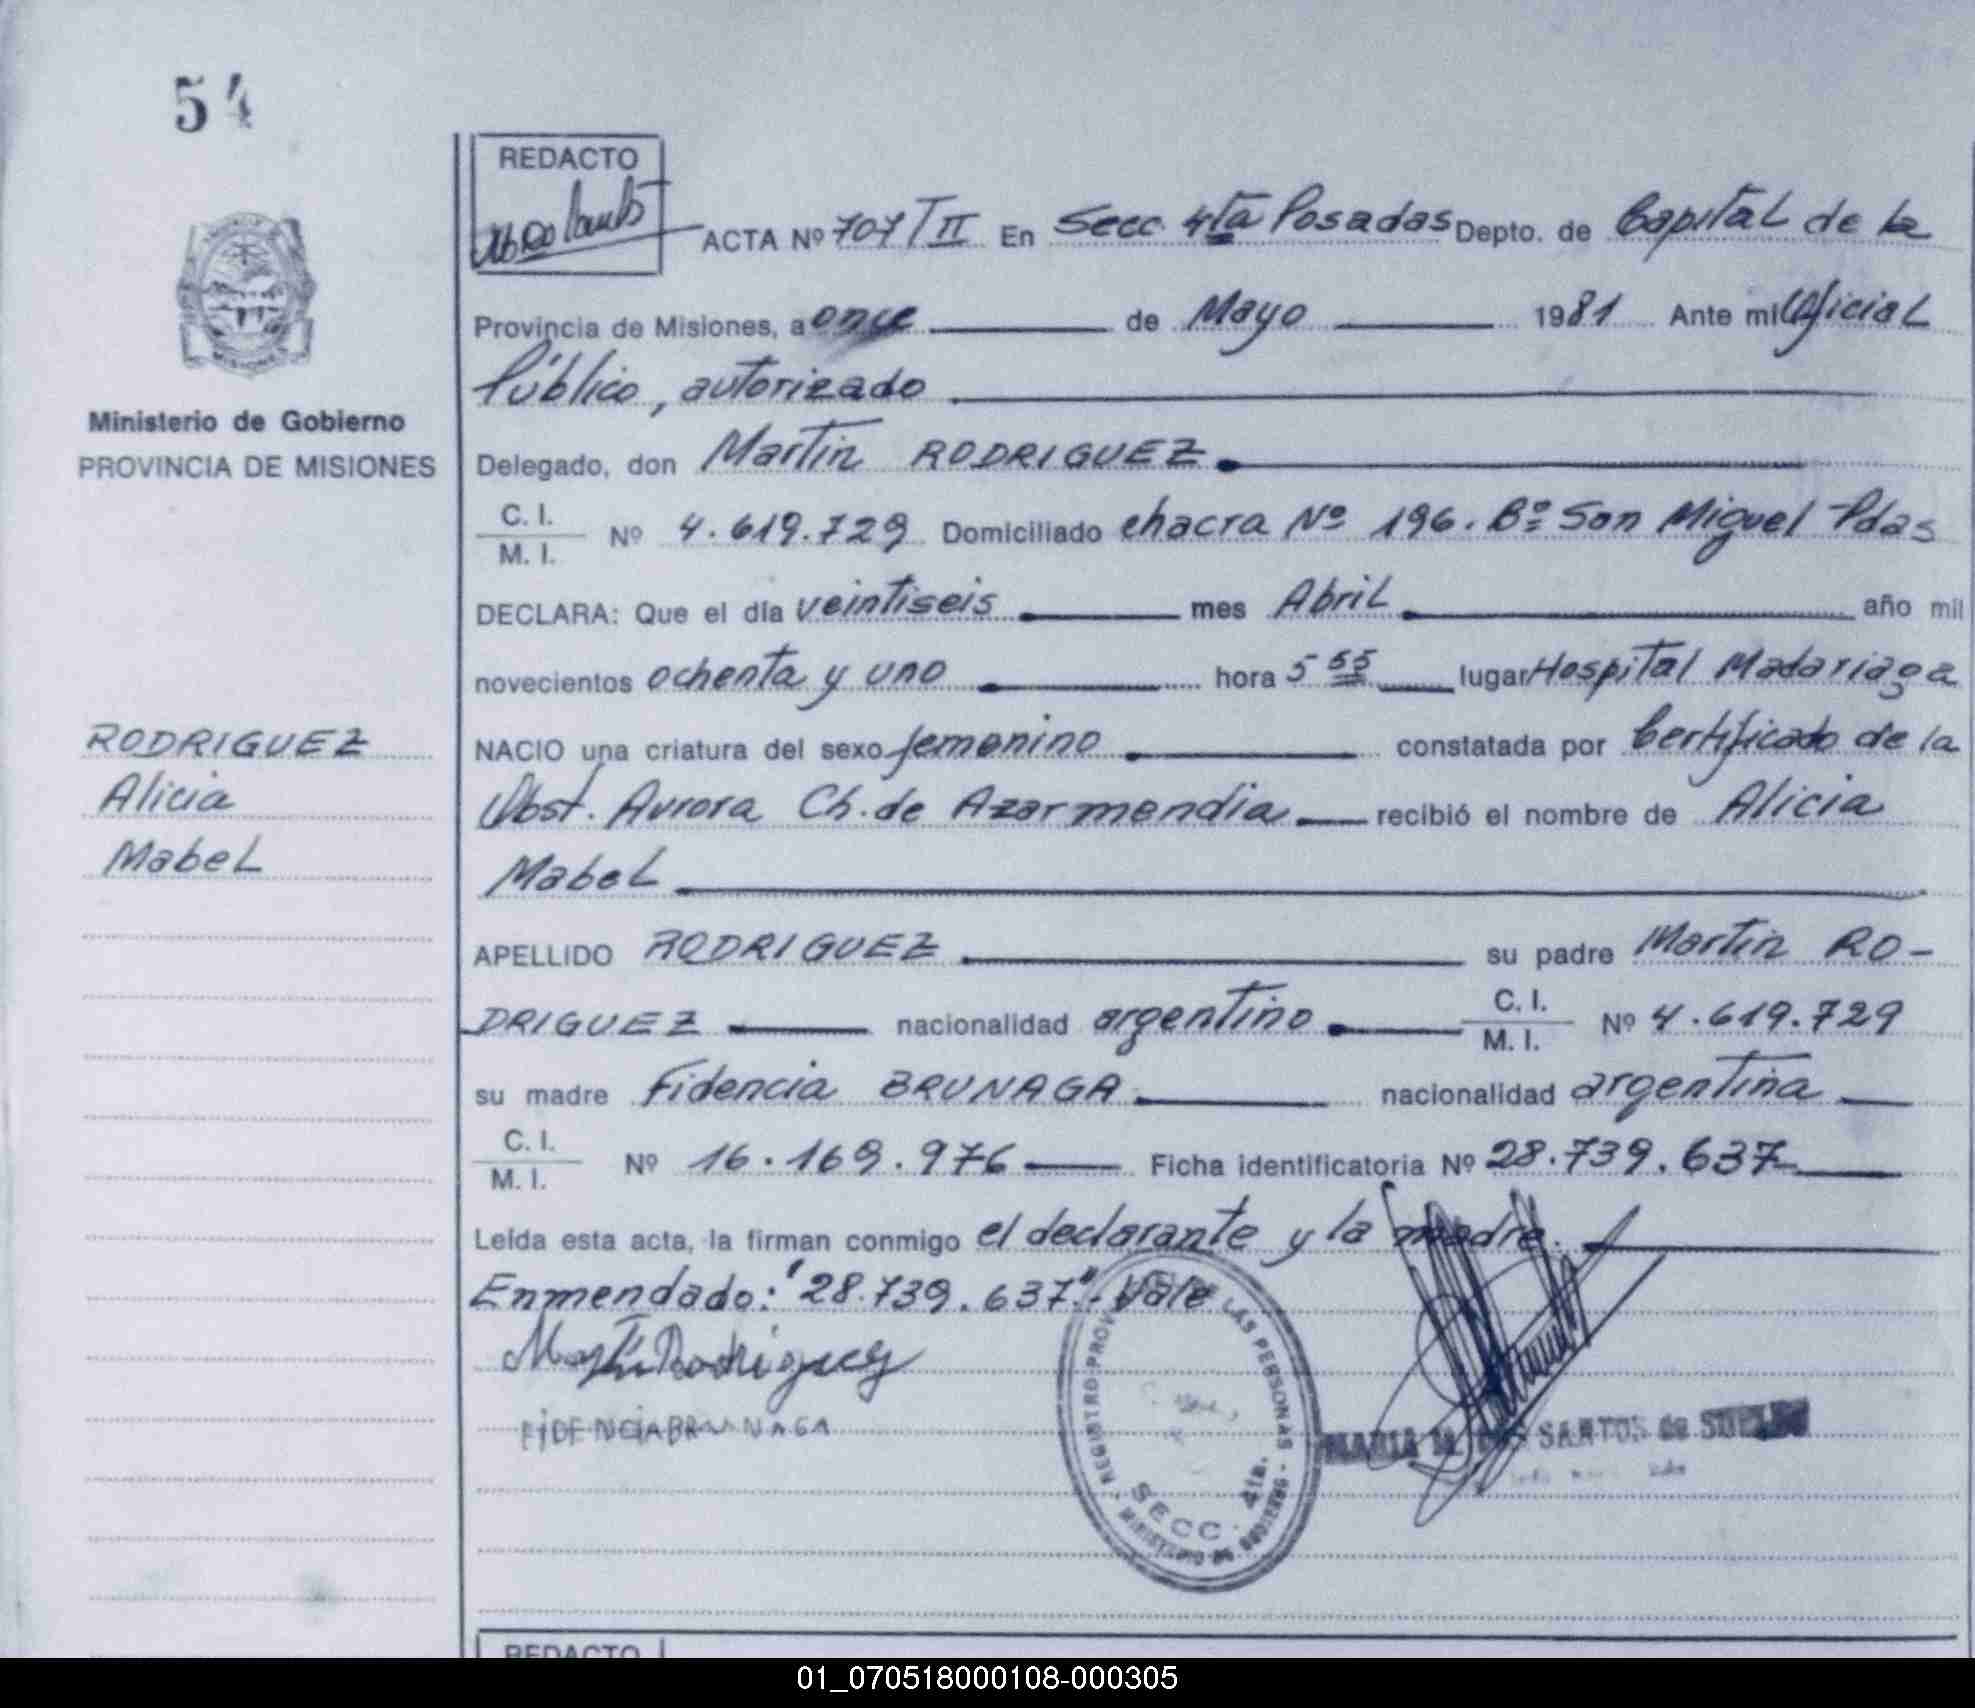 54
REDACTO
ACTA Nº 707 T II En Secc. 4ta Posadas Depto. de Capital de la
Provincia de Misiones, a once de Mayo 1981 Ante mi Oficial
Público, autorizado
Ministerio de Gobierno
PROVINCIA DE MISIONES
Delegado, don Martin RODRIGUEZ
C. I.
M. I. Nº 4.619.729 Domiciliado chacra Nº 196. Bº San Miguel Pdas
DECLARA: Que el día veintiseis mes Abril año mil
novecientos ochenta y uno hora 5 55 lugar Hospital Madariaga
RODRIGUEZ
Alicia
Mabel
NACIO una criatura del sexo femenino constatada por Certificado de la
Obst. Aurora Ch. de Azarmendia recibió el nombre de Alicia
Mabel
APELLIDO RODRIGUEZ su padre Martin RO-
DRIGUEZ nacionalidad argentino C. I.
M. I. Nº 4.619.729
su madre Fidencia BRUNAGA nacionalidad argentina
C. I.
M. I. Nº 16.169.976 Ficha identificatoria Nº 28.739.637
Leída esta acta, la firman conmigo el declarante y la madre.
Enmendado: "28.739.637".- Vale
Martin Rodriguez
FIDENCIA BRUNAGA
REGISTRO PROV. DE LAS PERSONAS
SECC. 4ta.
MINISTERIO DE GOBIERNO
MARIA SANTOS de
REDACTO
01_070518000108-000305